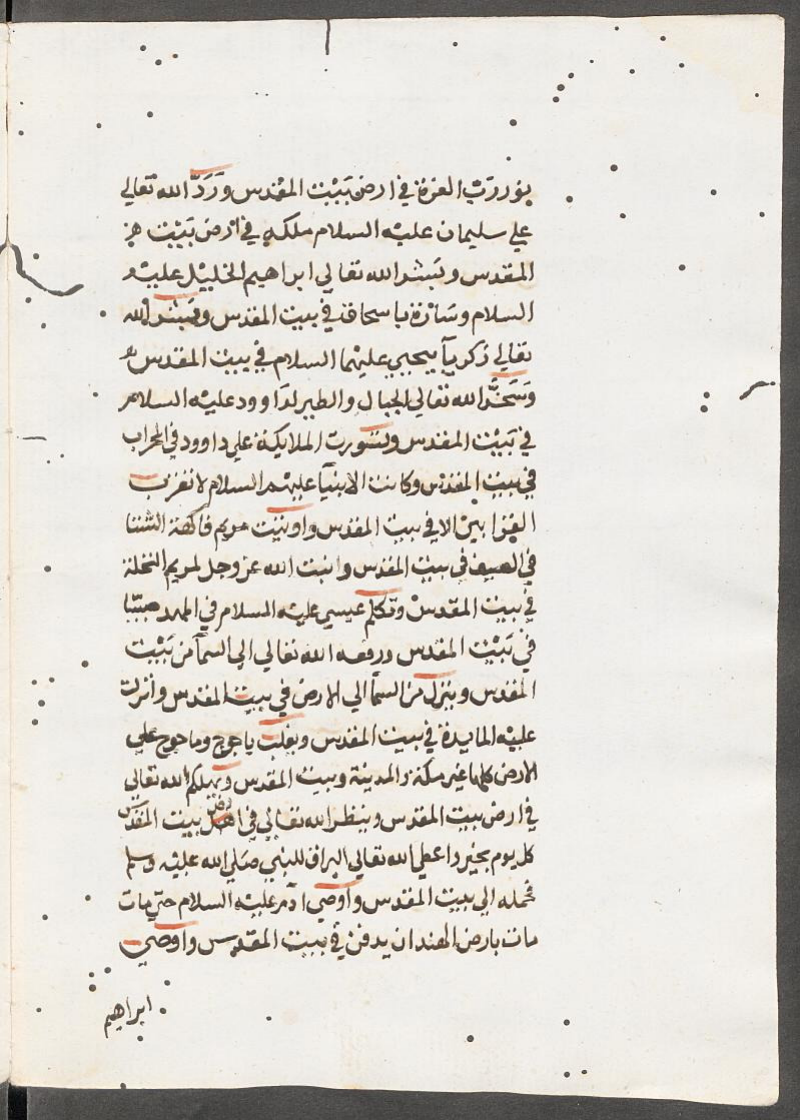 بنور رب العزة في ارض بَيْت المقدس وَرَدَّ الله تعالي
علي سليمان عليه السلام ملكه في ارض بَيْت
المقدس وبَشر الله تعالي ابراهيم الخليل عليه
السلام وسَارَة باسحاق في بيت المقدس وبَشر الله
تعالي زكريآ بيحيي عليهما السلام في بيت المقدس
وَسَخَّر الله تعالي الجبال والطير لداوود عليه السلام
في بَيْت المقدس وتسورت الملايكة علي داوود في المحراب
في بيت المقدس وكانت الانبيآ عليهم السلام لا تقرب
القرابين الا في بيت المقدس واوتيت مريم فاكهة الشتا
في الصيف في بيت المقدس وانبت الله عز وجل لمريم النخلة
في بيت المقدس وتكلم عيسي عليه السلام في المهد صبيّا
في بَيْت المقدس ورفعه الله تعالي الي السمآ من بَيْت
المقدس وينزل من السمآ الي الارض في بيت المقدس وانزلت
عليه المايدة في بيت المقدس ويغلب ياجوج وماجوج علي
الارض كلها غير مكة والمدينة وبيت المقدس ويهلكم الله تعالي
في ارض بيت المقدس وينظر الله تعالي في ارض بيت المقدس
كل يوم بخير واعطي الله تعالي البراق للنبي صَلي الله عليه وسلم
فحمله الي بيت المقدس واَوصَي ادَم عليه السلام حتي مات
مات بارض الهند ان يدفن في بيت المقدس واَوصَي
ابراهيم